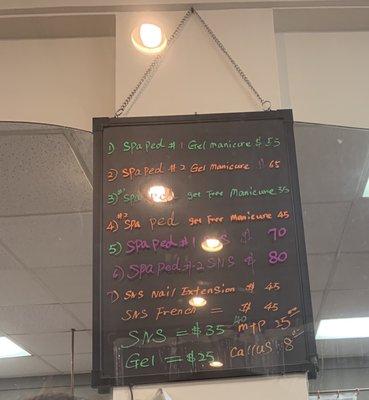 1) Spa Ped # 1 Gel manicure $ 55
2) Spa Ped # 2 Gel Manicure $ 65
3) #1 Spa Ped get Free Manicure 35
4) #2 Spa Ped get Free Manicure 45
5) Spa Ped # 1 SNS $ 70
6) Spa Ped # 2 SNS $ 80
7) SNS Nail Extension $ 45
SNS French = $ 45
SNS = $35 m+p 25
Gel = $25 Callus 8